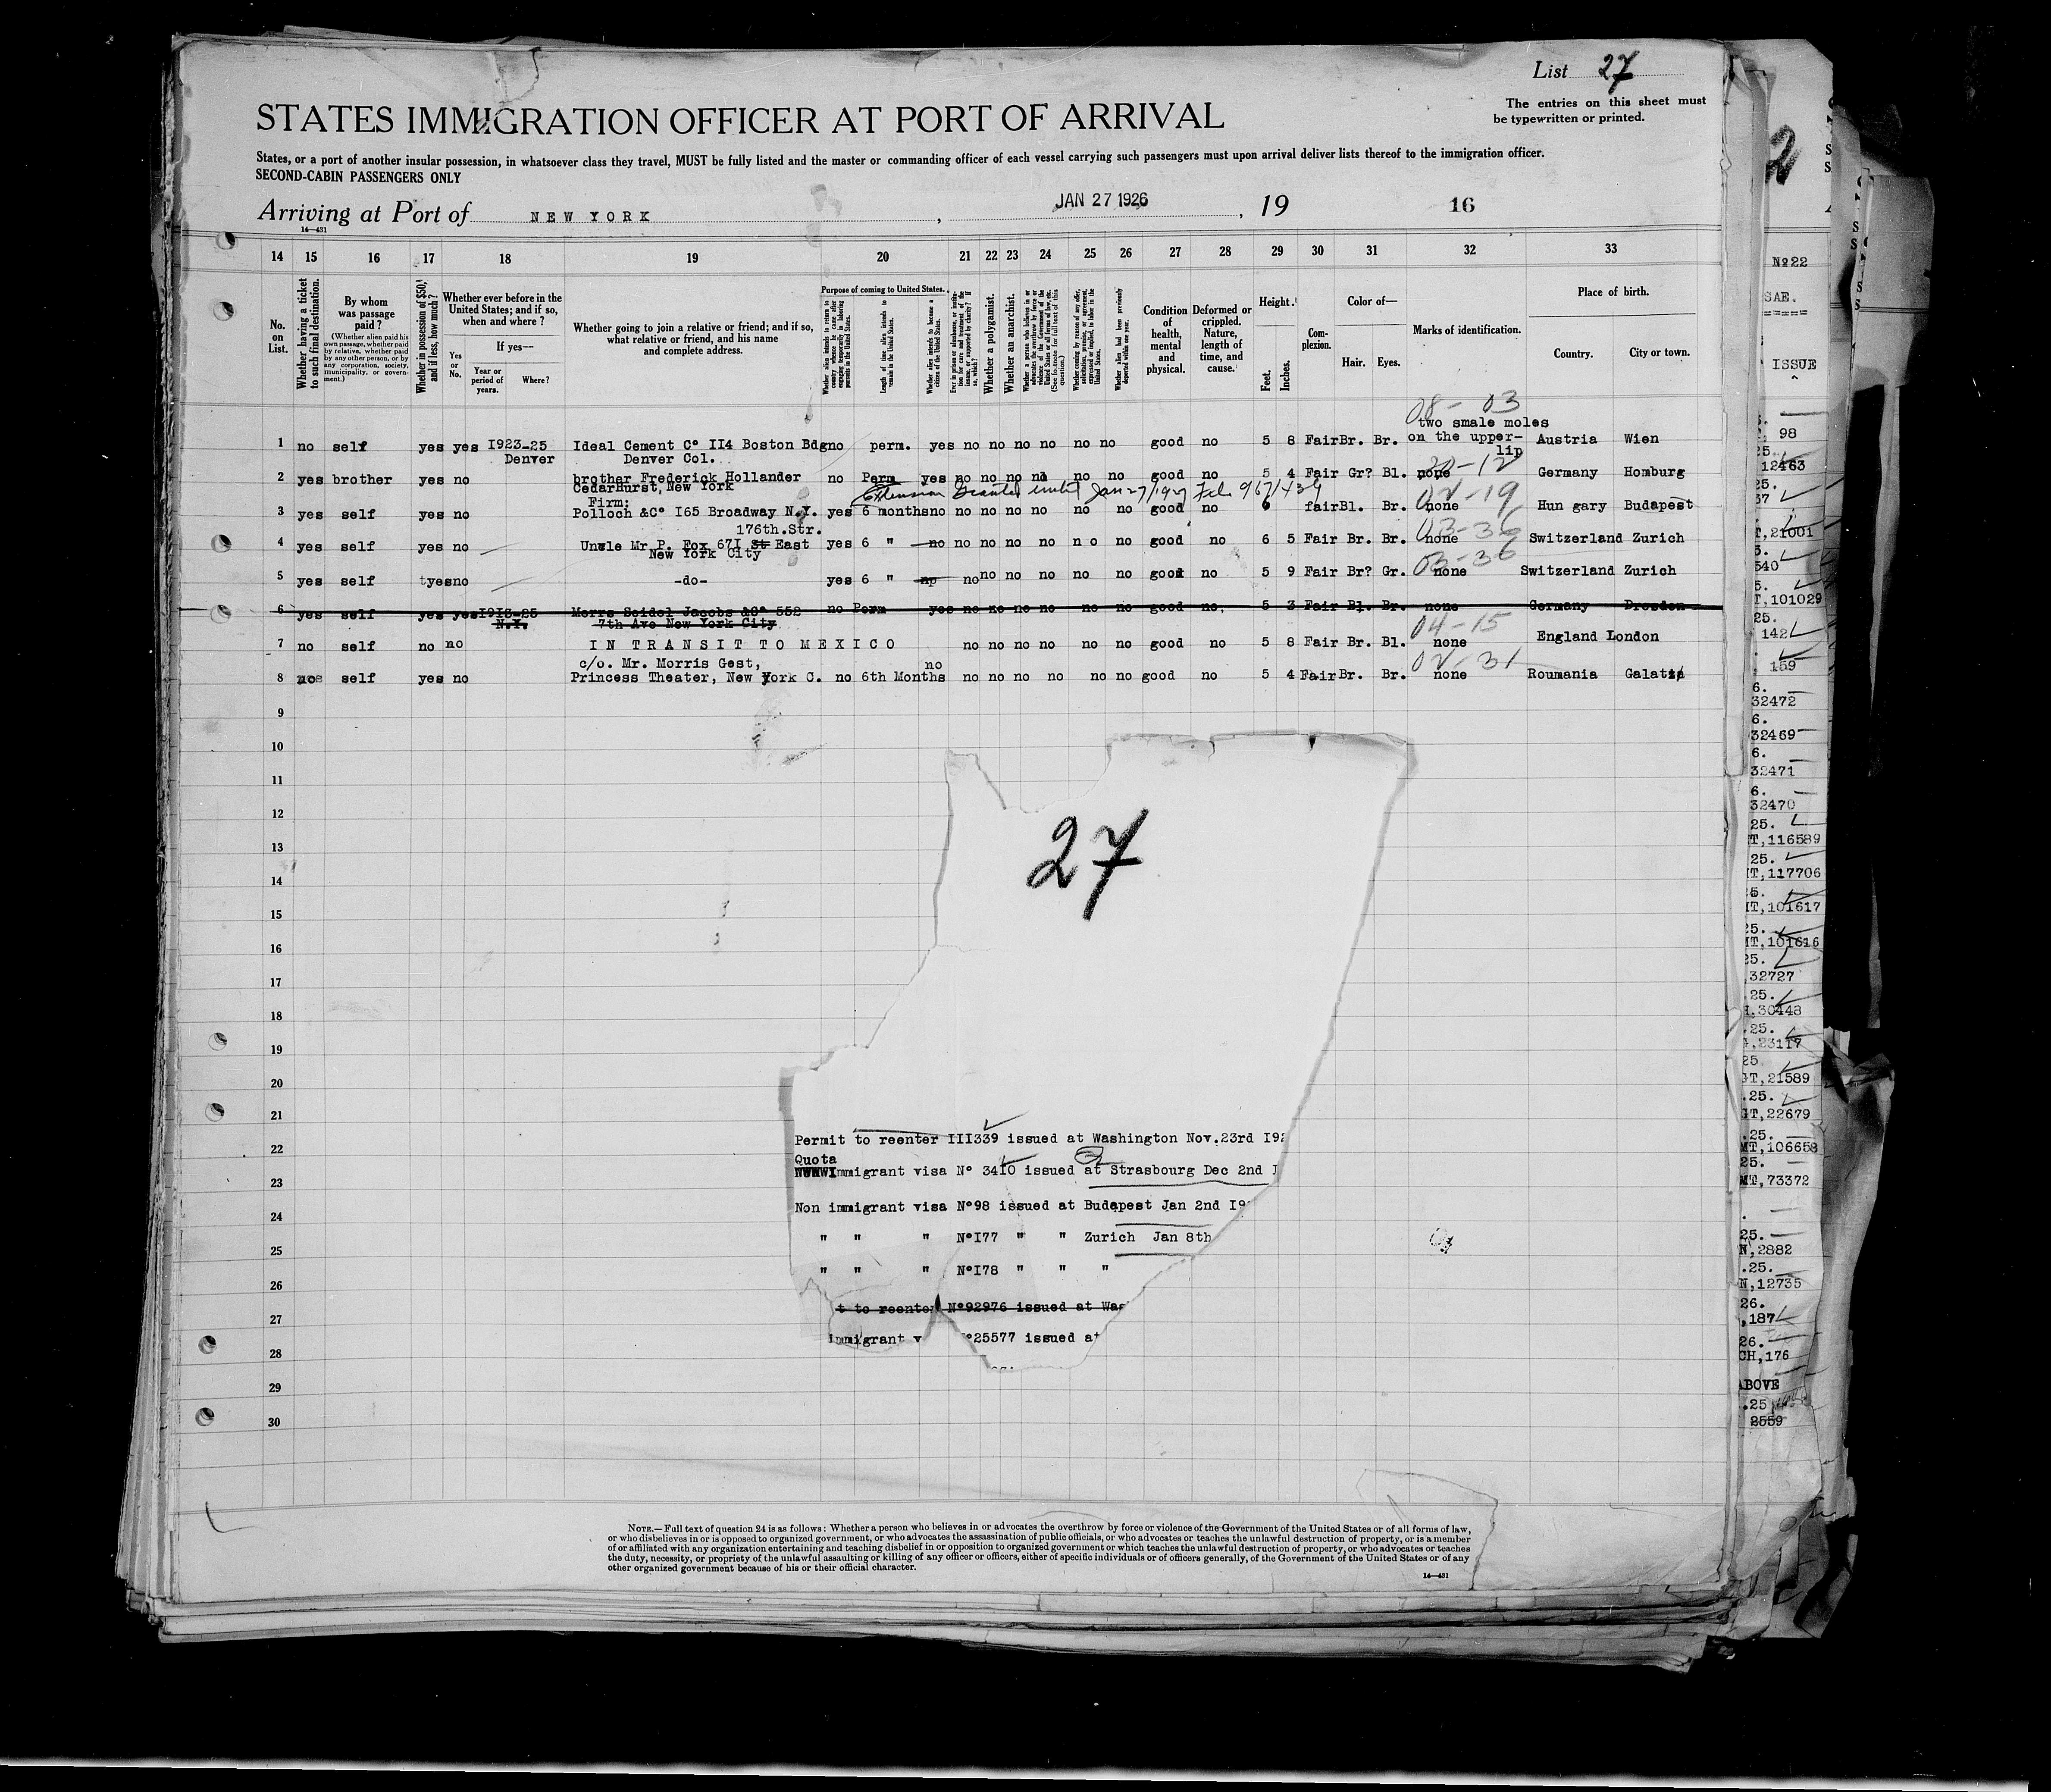 List 27
The entries on this sheet must
be typewritten or printed.
STATES IMMIGRATION OFFICER AT PORT OF ARRIVAL
States, or a port of another insular possession, in whatsoever class they travel, MUST be fully listed and the master or commanding officer of each vessel carrying such passengers must upon arrival deliver lists thereof to the immigration officer.
SECOND-CABIN PASSENGERS ONLY
Arriving at Port of NEW YORK , JAN 27 1926 , 19 16
14—431
14 15 16 17 18 19 20 21 22 23 24 25 26 27 28 29 30 31 32 33
No. on List.
Whether having a ticket to such final destination.
By whom was passage paid?
(Whether alien paid his own passage, whether paid by relative, whether paid by any other person, or by any corporation, society, municipality, or government.)
Whether in possession of $50, and if less, how much?
Whether ever before in the United States; and if so, when and where?
Yes or No.
If yes—
Year or period of years.
Where?
Whether going to join a relative or friend; and if so, what relative or friend, and his name and complete address.
Purpose of coming to United States.
Length of time alien intends to remain in the United States.
Whether alien intends to become a citizen of the United States.
Whether a polygamist.
Whether an anarchist.
Condition of health, mental and physical.
Deformed or crippled. Nature, length of time, and cause.
Height.
Feet. Inches.
Complexion.
Color of—
Hair. Eyes.
Marks of identification.
Place of birth.
Country. City or town.
08- 03
two smale moles
1 no self yes yes I923-25 Ideal Cement Co II4 Boston Bdg no perm. yes no no no no no no good no 5 8 Fair Br. Br. on the upper- Austria Wien
Denver Denver Col. lip
20-12
2 yes brother yes no brother Frederick Hollander no Perm yes no no no no no no good no 5 4 Fair Gr? Bl. none Germany Homburg
CedarHurst, New York
Extension Granted until Jan 27/1927
Firm: 02-19
3 yes self yes no Polloch &Co I65 Broadway N.Y. yes 6 months no no no no no no no good no 6 fair Bl. Br. none Hun gary Budapest
176th.Str. 03-36
4 yes self yes no Unwle Mr P. Fox 67I St East yes 6 " no no no no no n o no good no 6 5 Fair Br. Br. none Switzerland Zurich
New York City
03-36
5 yes self tyes no -do- yes 6 " no no no no no no no good no 5 9 Fair Br? Gr. none Switzerland Zurich
6 yes self yes yes I913-25 Merrs Seidel Jacobs &Co 552 no Perm yes no no no no no no good no. 5 3 Fair Bl. Br. none Germany Dresden
N.Y. 7th Ave New York City
04-15
7 no self no no IN TRANSIT TO MEXICO no no no no no no good no 5 8 Fair Br. Bl. none England London
c/o. Mr. Morris Gest, no 02-31
8 no self yes no Princess Theater, New York C. no 6th Months no no no no no no good no 5 4 Fair Br. Br. none Roumania Galatz
9
10
11
12
13
14
15
16
17
18
19
20
21
22
23
24
25
26
27
28
29
30
27
Permit to reenter III339 issued at Washington Nov.23rd I92
Quota
Immigrant visa No 34I0 issued at Strasbourg Dec 2nd I
Non immigrant visa No98 issued at Budapest Jan 2nd I9
" " " NoI77 " " Zurich Jan 8th
" " " NoI78 " " "
t to reenter No92976 issued at Was
immigrant v o25577 issued at
NOTE.—Full text of question 24 is as follows: Whether a person who believes in or advocates the overthrow by force or violence of the Government of the United States or of all forms of law,
or who disbelieves in or is opposed to organized government, or who advocates the assassination of public officials, or who advocates or teaches the unlawful destruction of property, or is a member
of or affiliated with any organization entertaining and teaching disbelief in or opposition to organized government or which teaches the unlawful destruction of property, or who advocates or teaches
the duty, necessity, or propriety of the unlawful assaulting or killing of any officer or officers, either of specific individuals or of officers generally, of the Government of the United States or of any
other organized government because of his or their official character.
14—431
2
No22
SAE.
=====
ISSUE
98
25.
12463
25.
37
T,21001
540
T,101029
25.
142
159
6.
32472
6.
32469
6.
32471
6.
32470
25.
T,116589
25.
IT,117706
25.
IT,101617
25.
IT,101616
25.
,32727
.25.
,30448
.25.
,23117
25
GT,21589
.25.
GT,22679
.25.
MT,106658
25.
MT,73372
25.
N,2882
.25.
N,12735
26.
,187
26.
CH,176
ABOVE
.25
2559